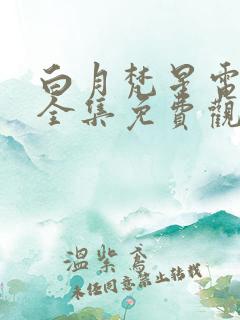 白月梵星電
全集免費觀
溫柴鳶
未经同意禁止转载